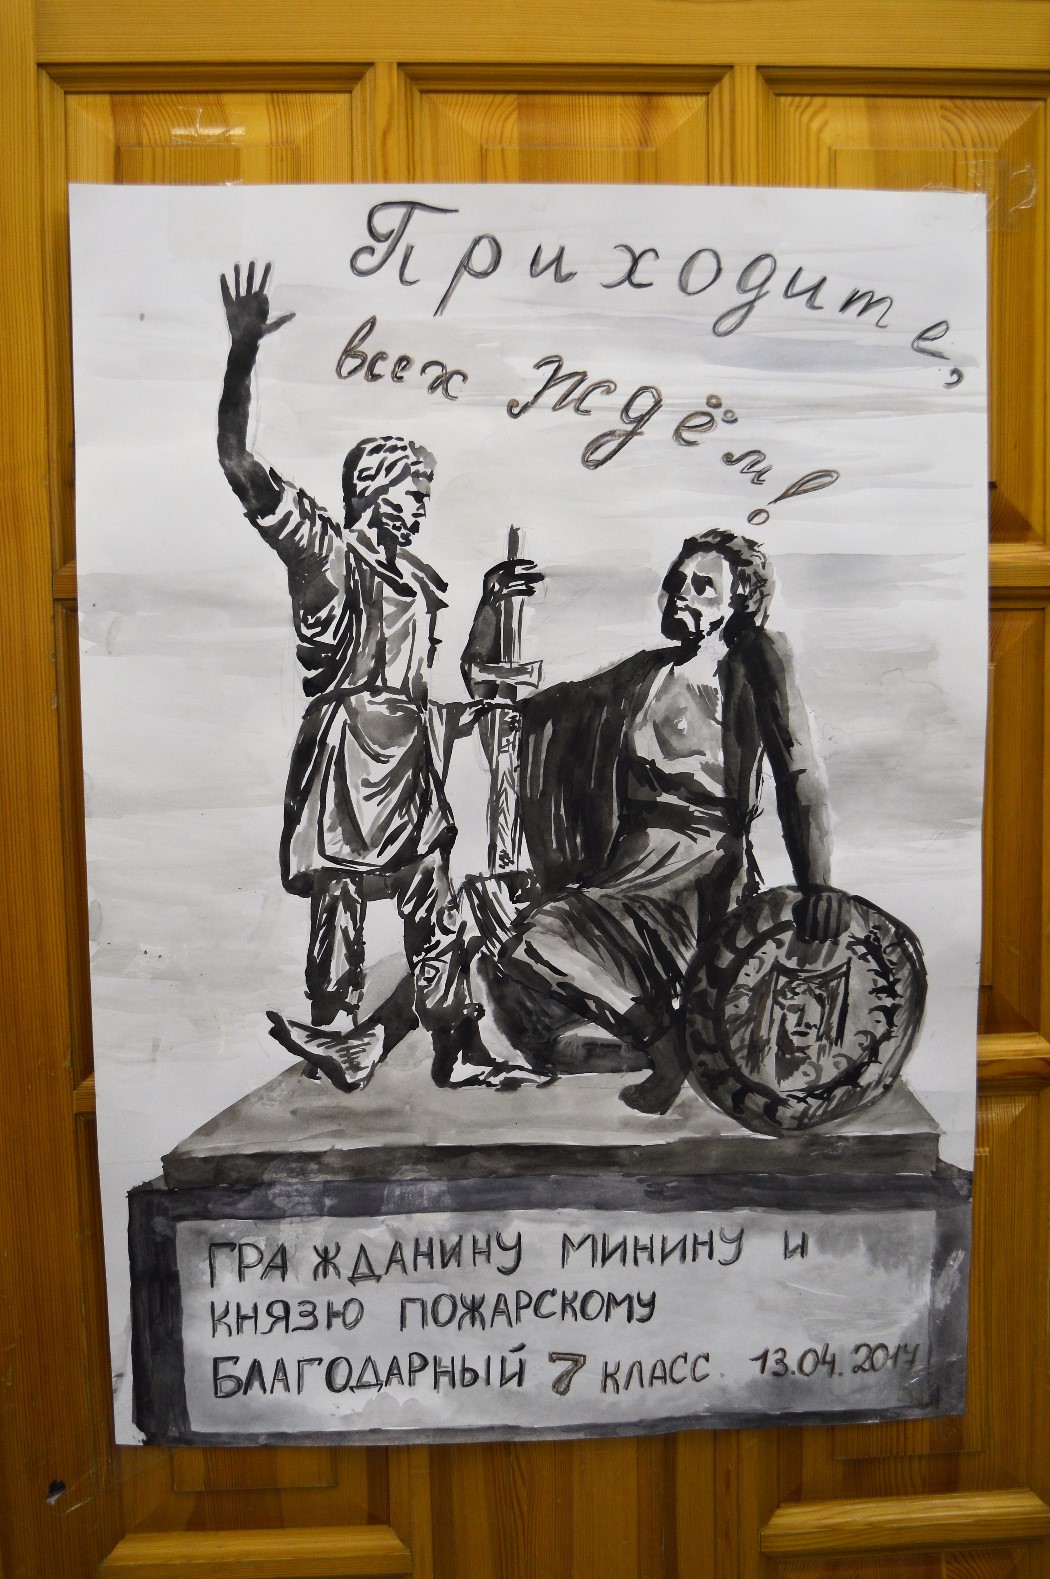 Приходите,
всех ждём!
ГРАЖДАНИНУ МИНИНУ И
КНЯЗЮ ПОЖАРСКОМУ
БЛАГОДАРНЫЙ 7 КЛАСС. 13.04.2014